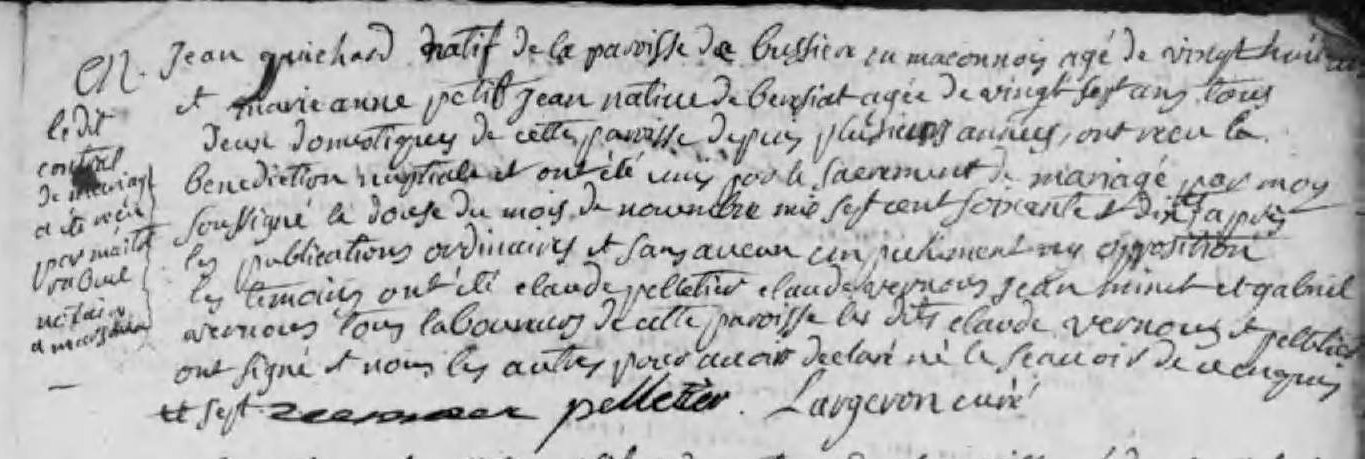 Jean guichard natif de la paroisse de bussiere en maconnois agé de vingt huit
et marie anne petit jean native de agée de vingt sept ans tous
deux domestiques de cette paroisse depuis plusieurs années, ont recu la
benediction nuptiale et ont été unis par le sacrement de mariage par moy
soussigné le douse du mois de novembre mil sept cent soixante et dix apres
les publications ordinaires et sans aucun empechement ny opposition
les temoins ont été claude pelletier claude vernous jean et gabriel
vernous tous laboureurs de cette paroisse les dits claude vernous et pelletier
ont signé et nons les autres pour avoir declaré ne le scavoir de ce enquis
et sept
pelletier. Largeron curé
ledit
contrat
de mariage
a été recu
par maitre
notaire
a